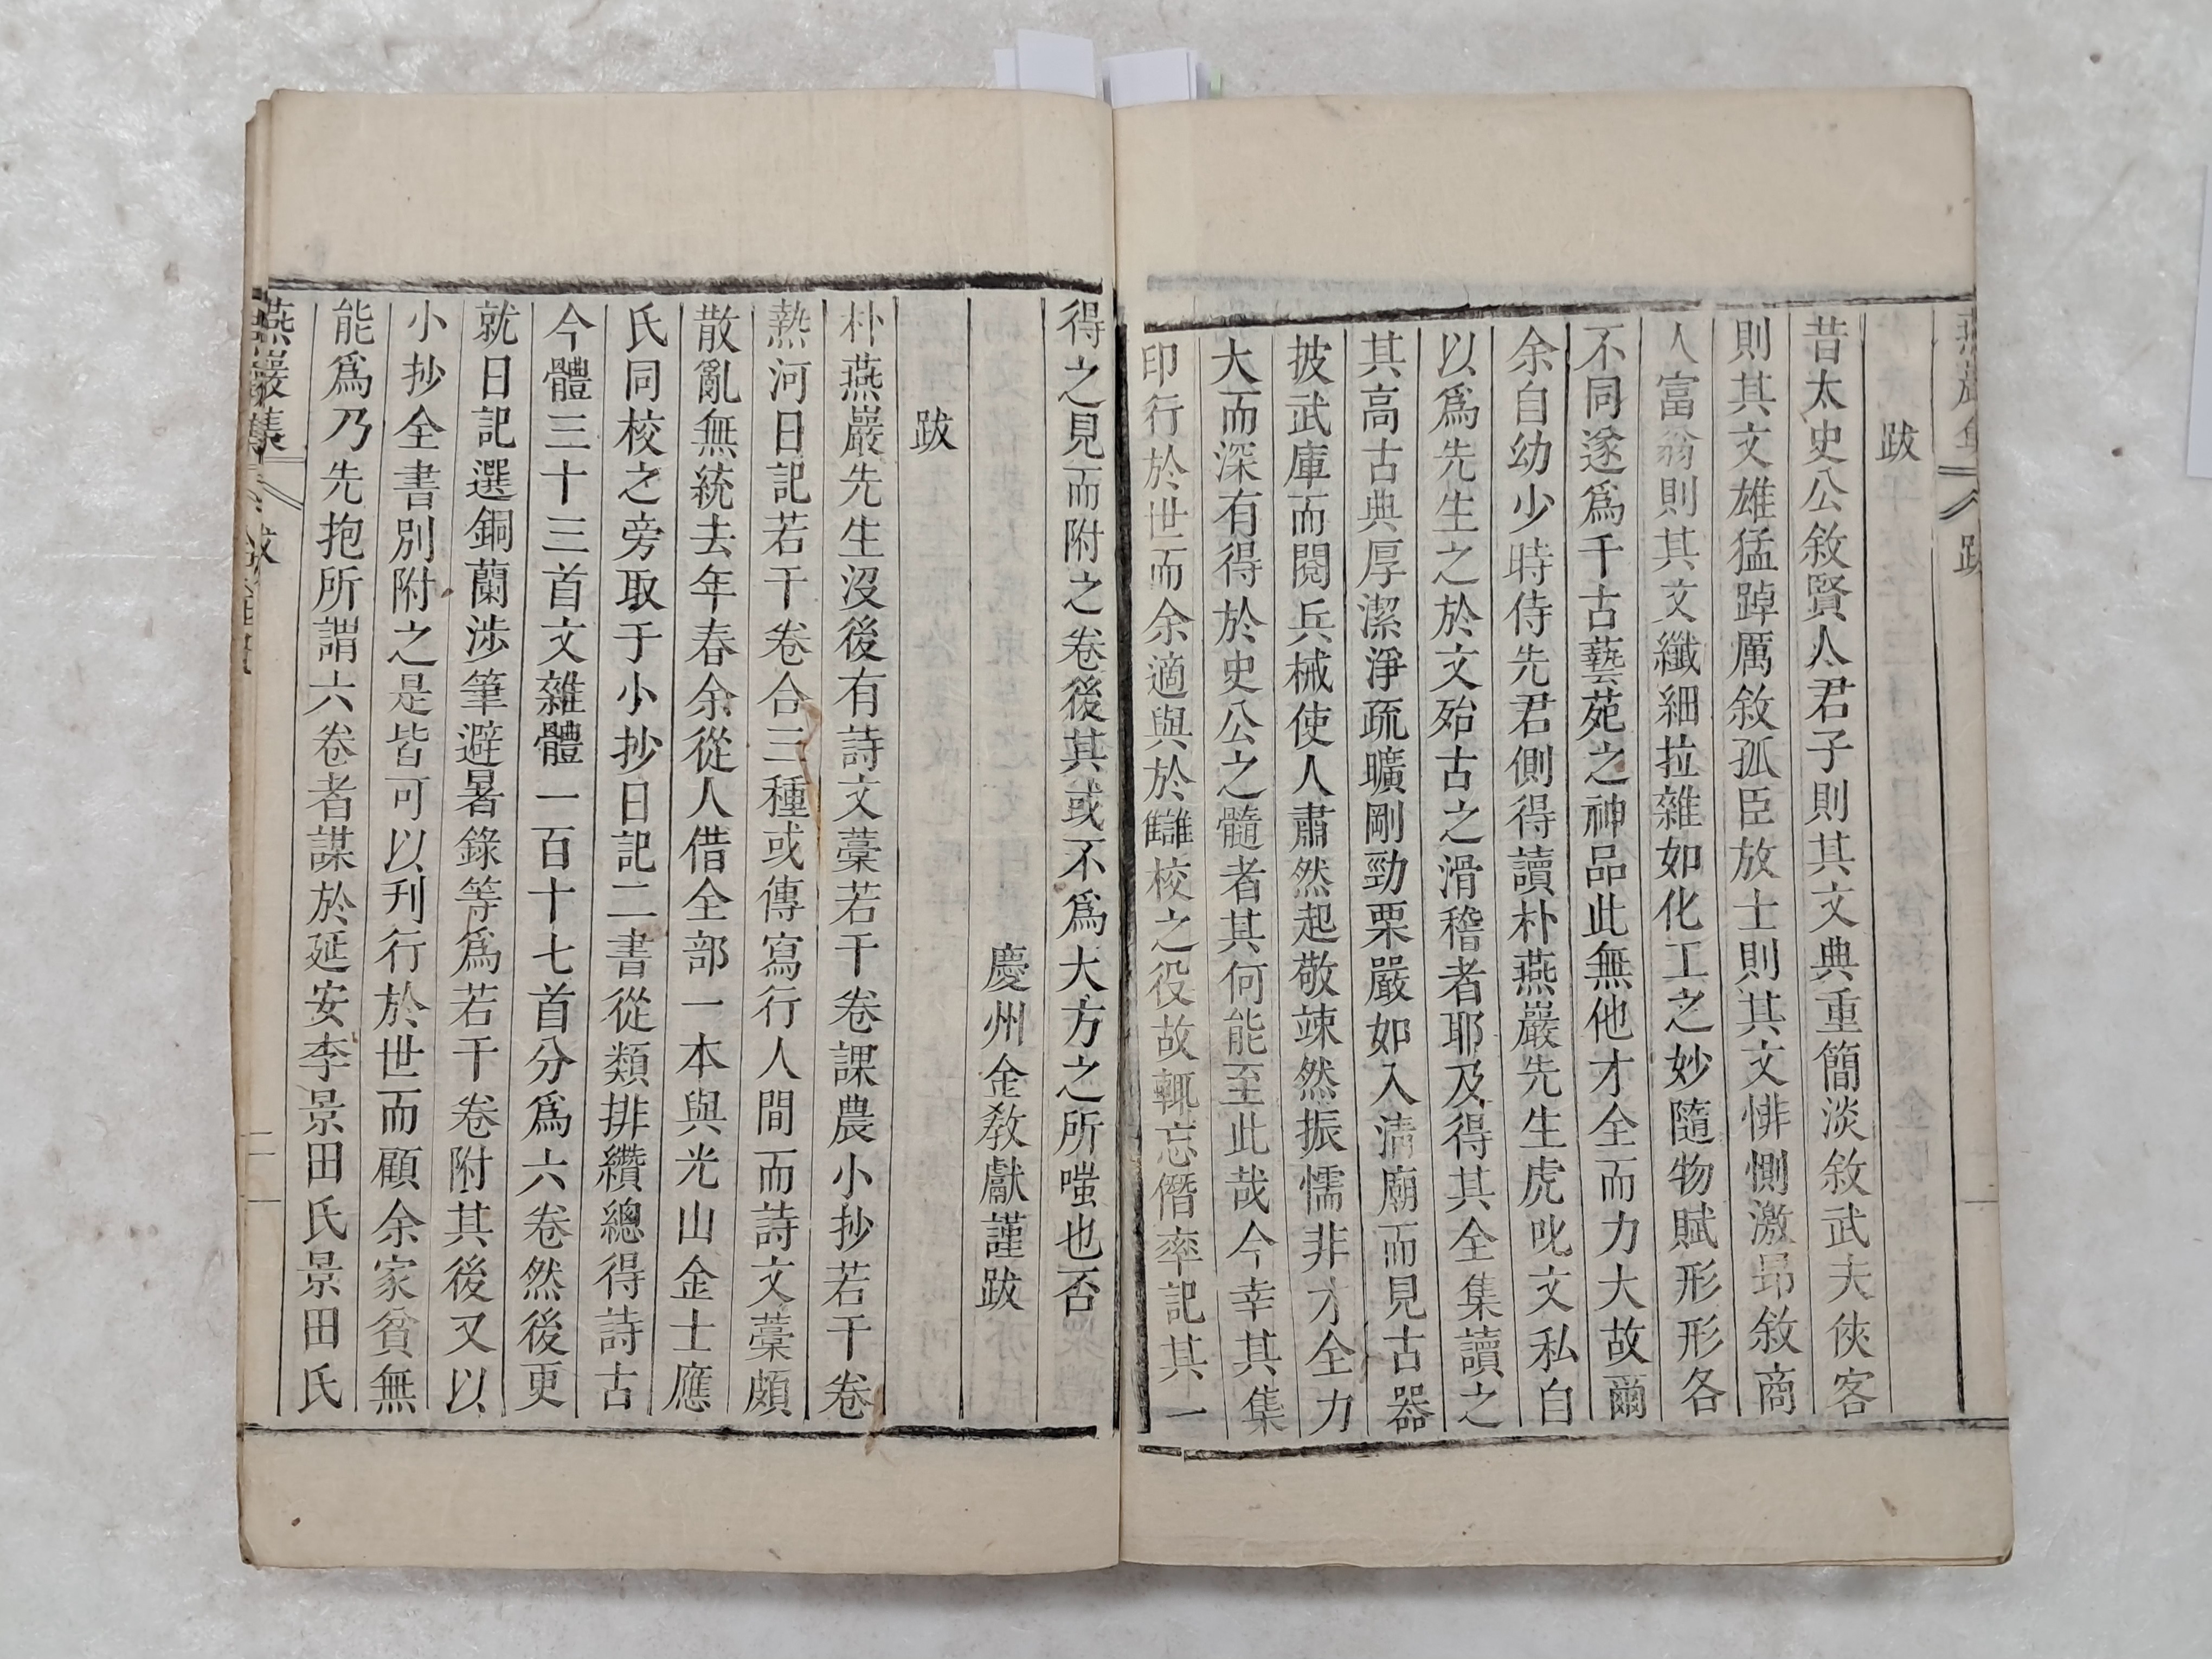 跋
昔太史公敘賢人君子則其文典重簡淡敘武夫俠客
則其文雄猛踔厲敘孤臣放士則其文悱惻激昻敘商
人富翁則其文纖細拉雜如化工之妙隨物賦形形各
不同遂爲千古藝苑之神品此無他才全而力大故爾
余自幼少時侍先君側得讀朴燕巖先生虎叱文私自
以爲先生之於文殆古之滑稽者耶及得其全集讀之
其高古典厚潔淨疏曠剛勁栗嚴如入淸廟而見古器
披武庫而閱兵械使人肅然起敬竦然振懦非才全力
大而深有得於史公之髓者其何能至此哉今幸其集
印行於世而余適與於讎校之役故輒忘僭率記其一
得之見而附之卷後其或不爲大方之所嗤也否
慶州金敎獻謹跋
跋
朴燕巖先生沒後有詩文藁若干卷課農小抄若干卷
熱河日記若干卷合三種或傳寫行人間而詩文藁頗
散亂無統去年春余從人借全部一本與光山金士應
氏同校之旁取于小抄日記二書從類排纘總得詩古
今體三十三首文雜體一百十七首分爲六卷然後更
就日記選銅蘭涉筆避暑錄等爲若干卷附其後又以
小抄全書別附之是皆可以刋行於世而顧余家貧無
能爲乃先抱所謂六卷者謀於延安李景田氏景田氏
燕巖集
二